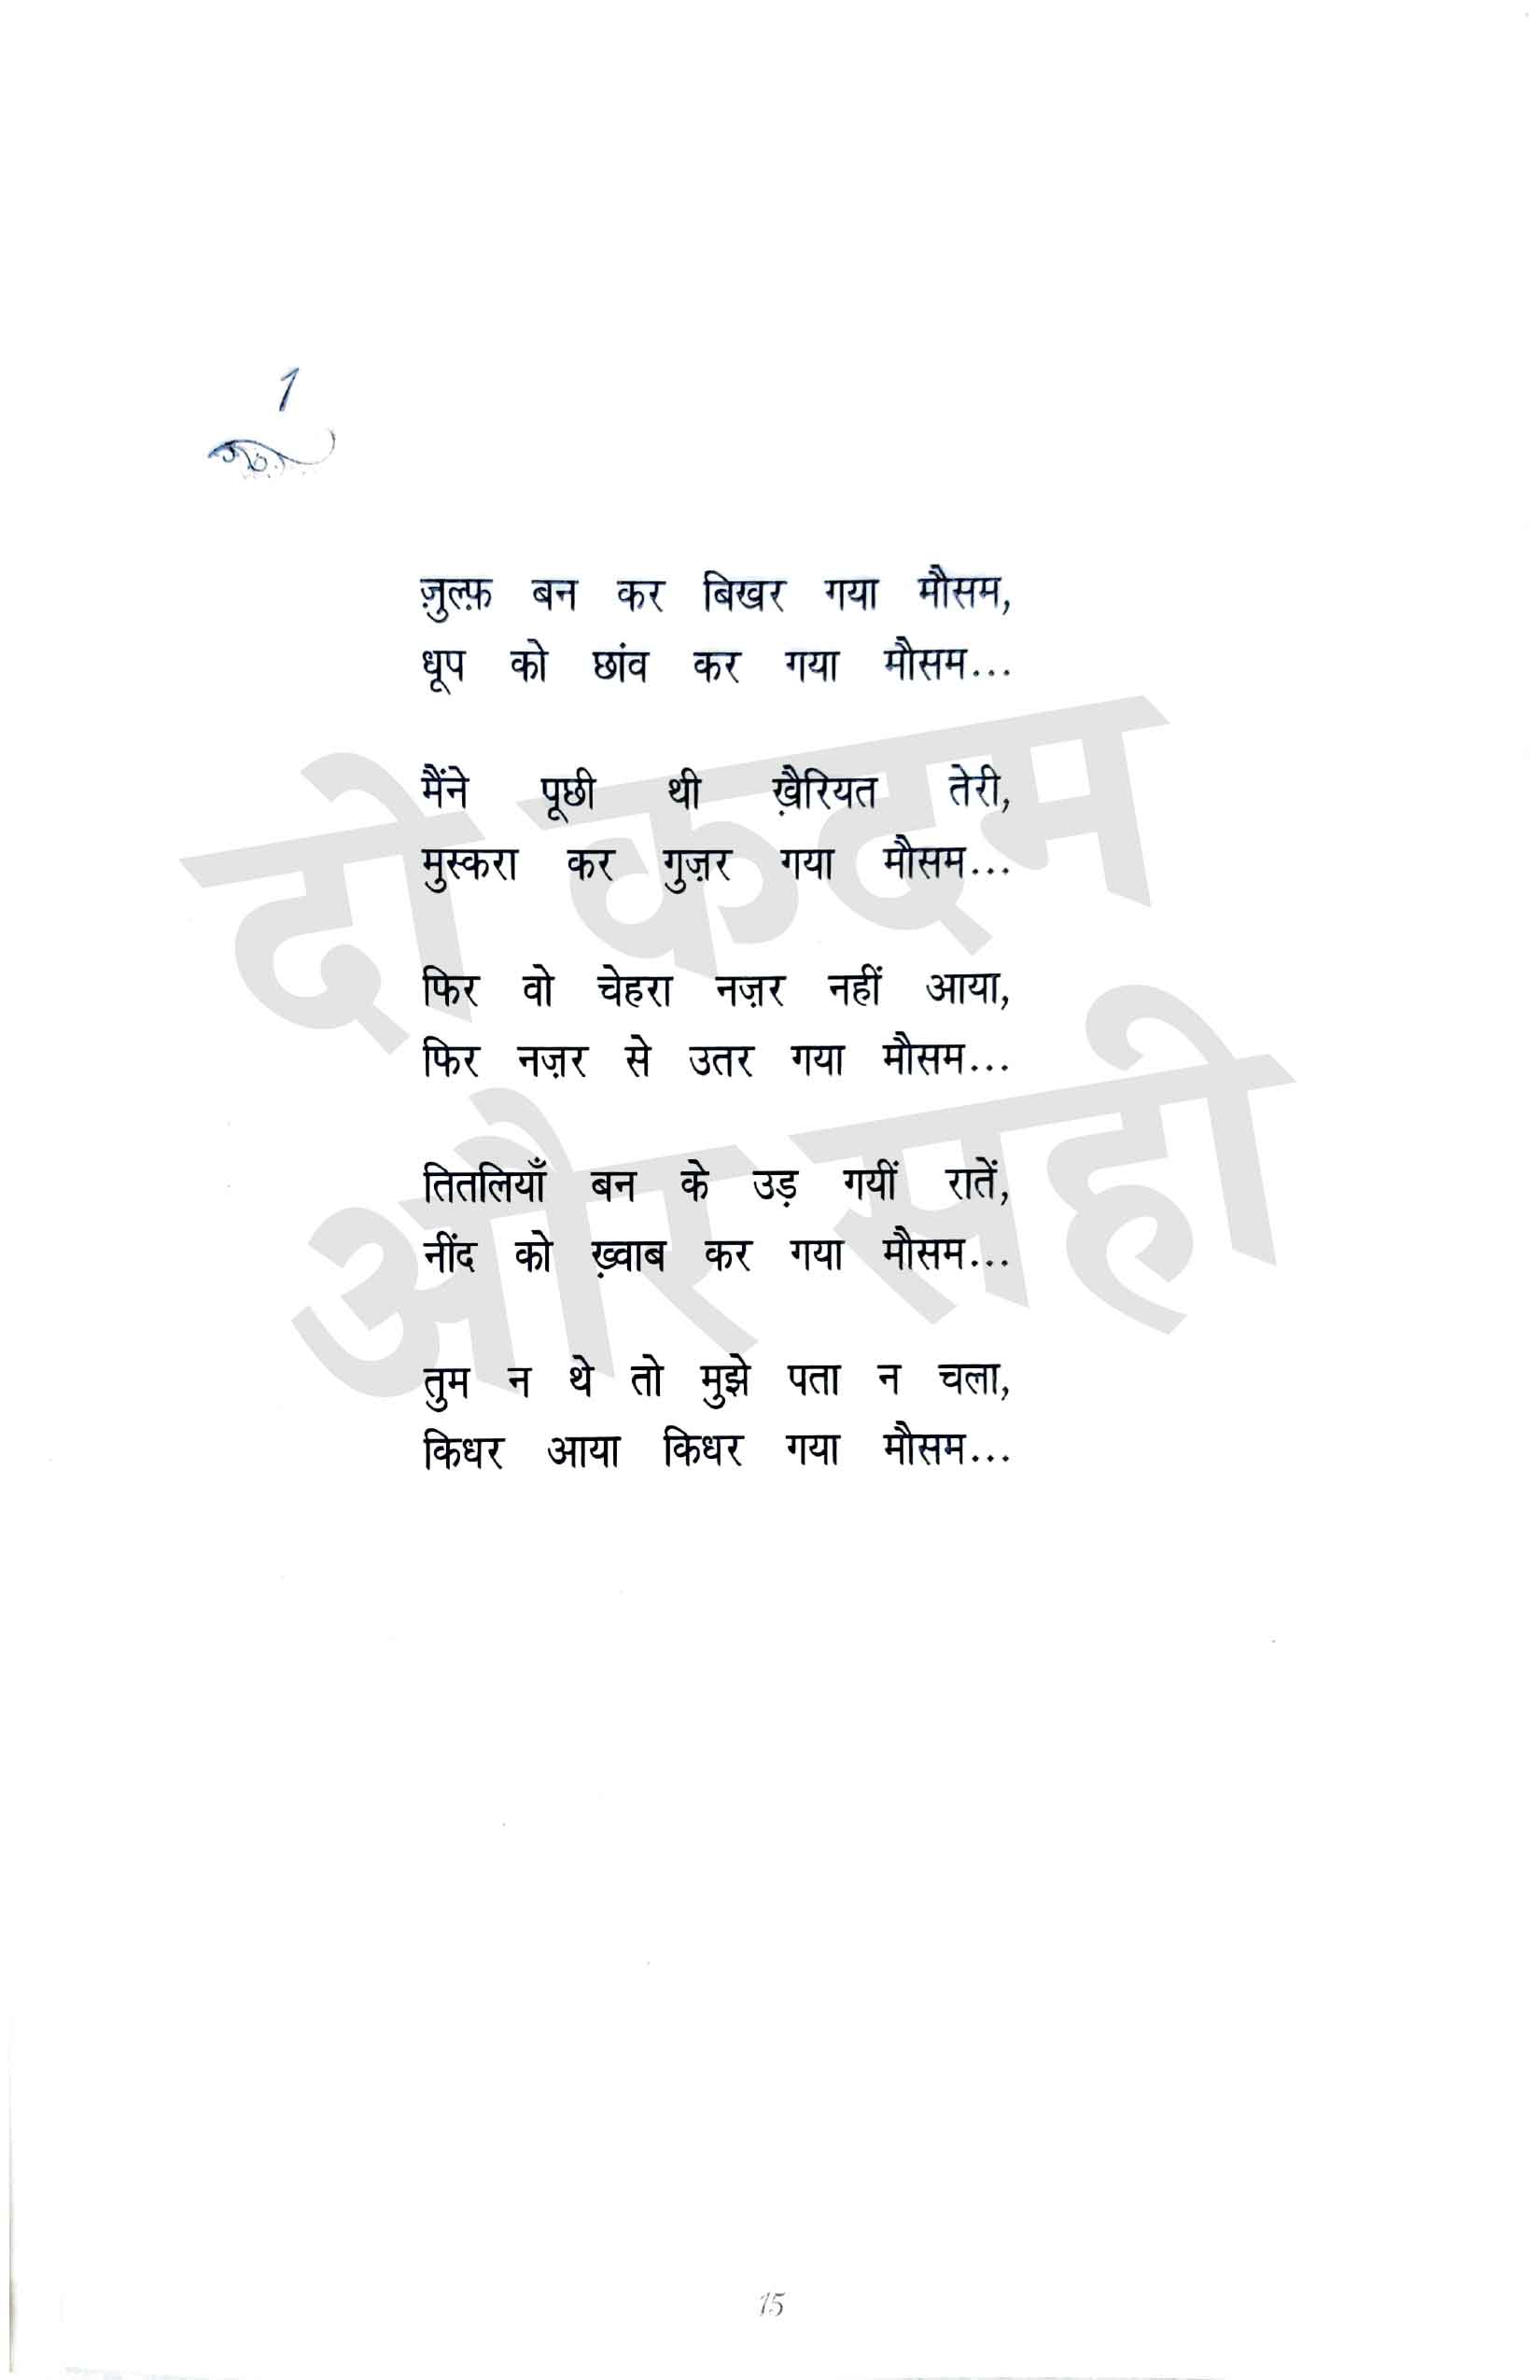 1
ज़ुल्फ़ बन कर बिखर गया मौसम,
धूप को छांव कर गया मौसम...
मैंने पूछी थी ख़ैरियत तेरी,
मुस्करा कर गुज़र गया मौसम...
फिर वो चेहरा नज़र नहीं आया,
फिर नज़र से उतर गया मौसम...
तितलियाँ बन के उड़ गयीं रातें,
नींद को ख़्वाब कर गया मौसम...
तुम न थे तो मुझे पता न चला,
किधर आया किधर गया मौसम...
दो कदम
और सही
15